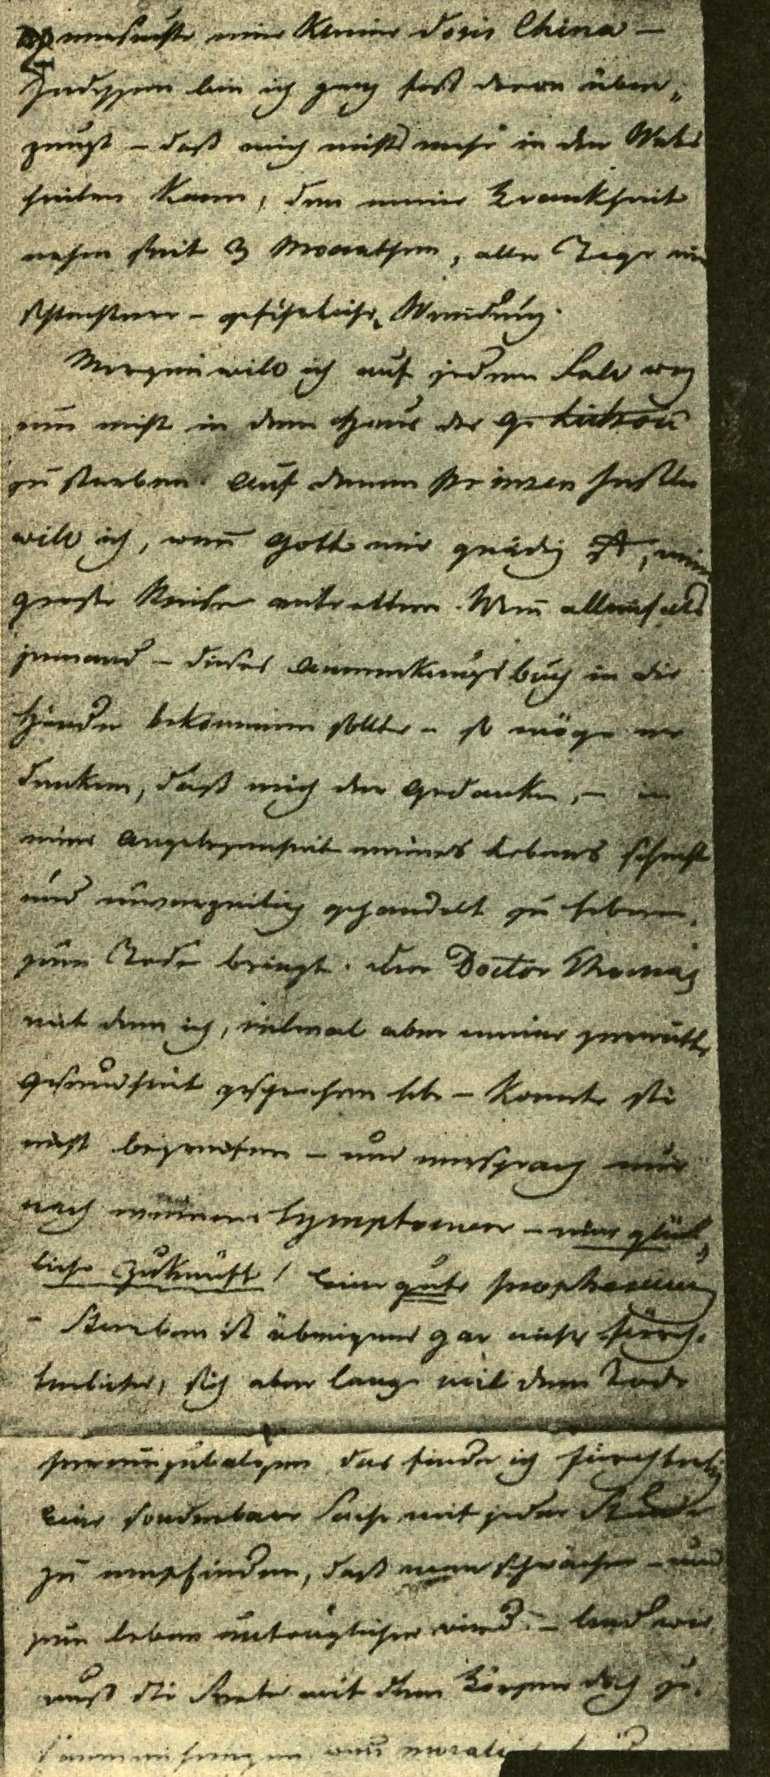 verschaffte mir keine dosis China —
Indessen bin ich ganz fest davon über„
zeugt — daß mich nichts mehr in der Welt
heilen kann, den meine Krankheit
nahm seit 3 Monathen, alle Tage eine
schlechtere — gefährlichere Wendung.
Morgen will ich auf jeden Fall weg
um nicht in dem Haus der G.
zu sterben. Auf denen
will ich, wenn Gott mir gnädig ist, meine
große Reise antretten. Wenn allenfals
jemand — dieses Anmerkungsbuch in die
Hände bekommen sollte — so möge er
denken, daß mich der Gedanke, — in
einer Angelegenheit meines Lebens schlecht
und unverzeilig gehandelt zu haben,
zum Tode bringt. Der Doctor Thomas
mit dem ich, vielmal über meine zerrütte
Gesundheit gesprochen habe — konnte sie
nicht begreifen — und versprach mir
nach meinen Symptomen — eine glück„
liche Zukunft! Eine gute
— Sterben ist übrigens gar nichts fürch„
terliches, sich aber lange mit dem Tode
herumzubalgen das finde ich fürchterlich
Eine sonderbare Sache mit jeder Stunde
zu empfinden, daß man schwächer — und
zum Leben untauglicher wird. — Und wie
muß die Seele mit dem Körper doch zu„
sammenhengen wenn